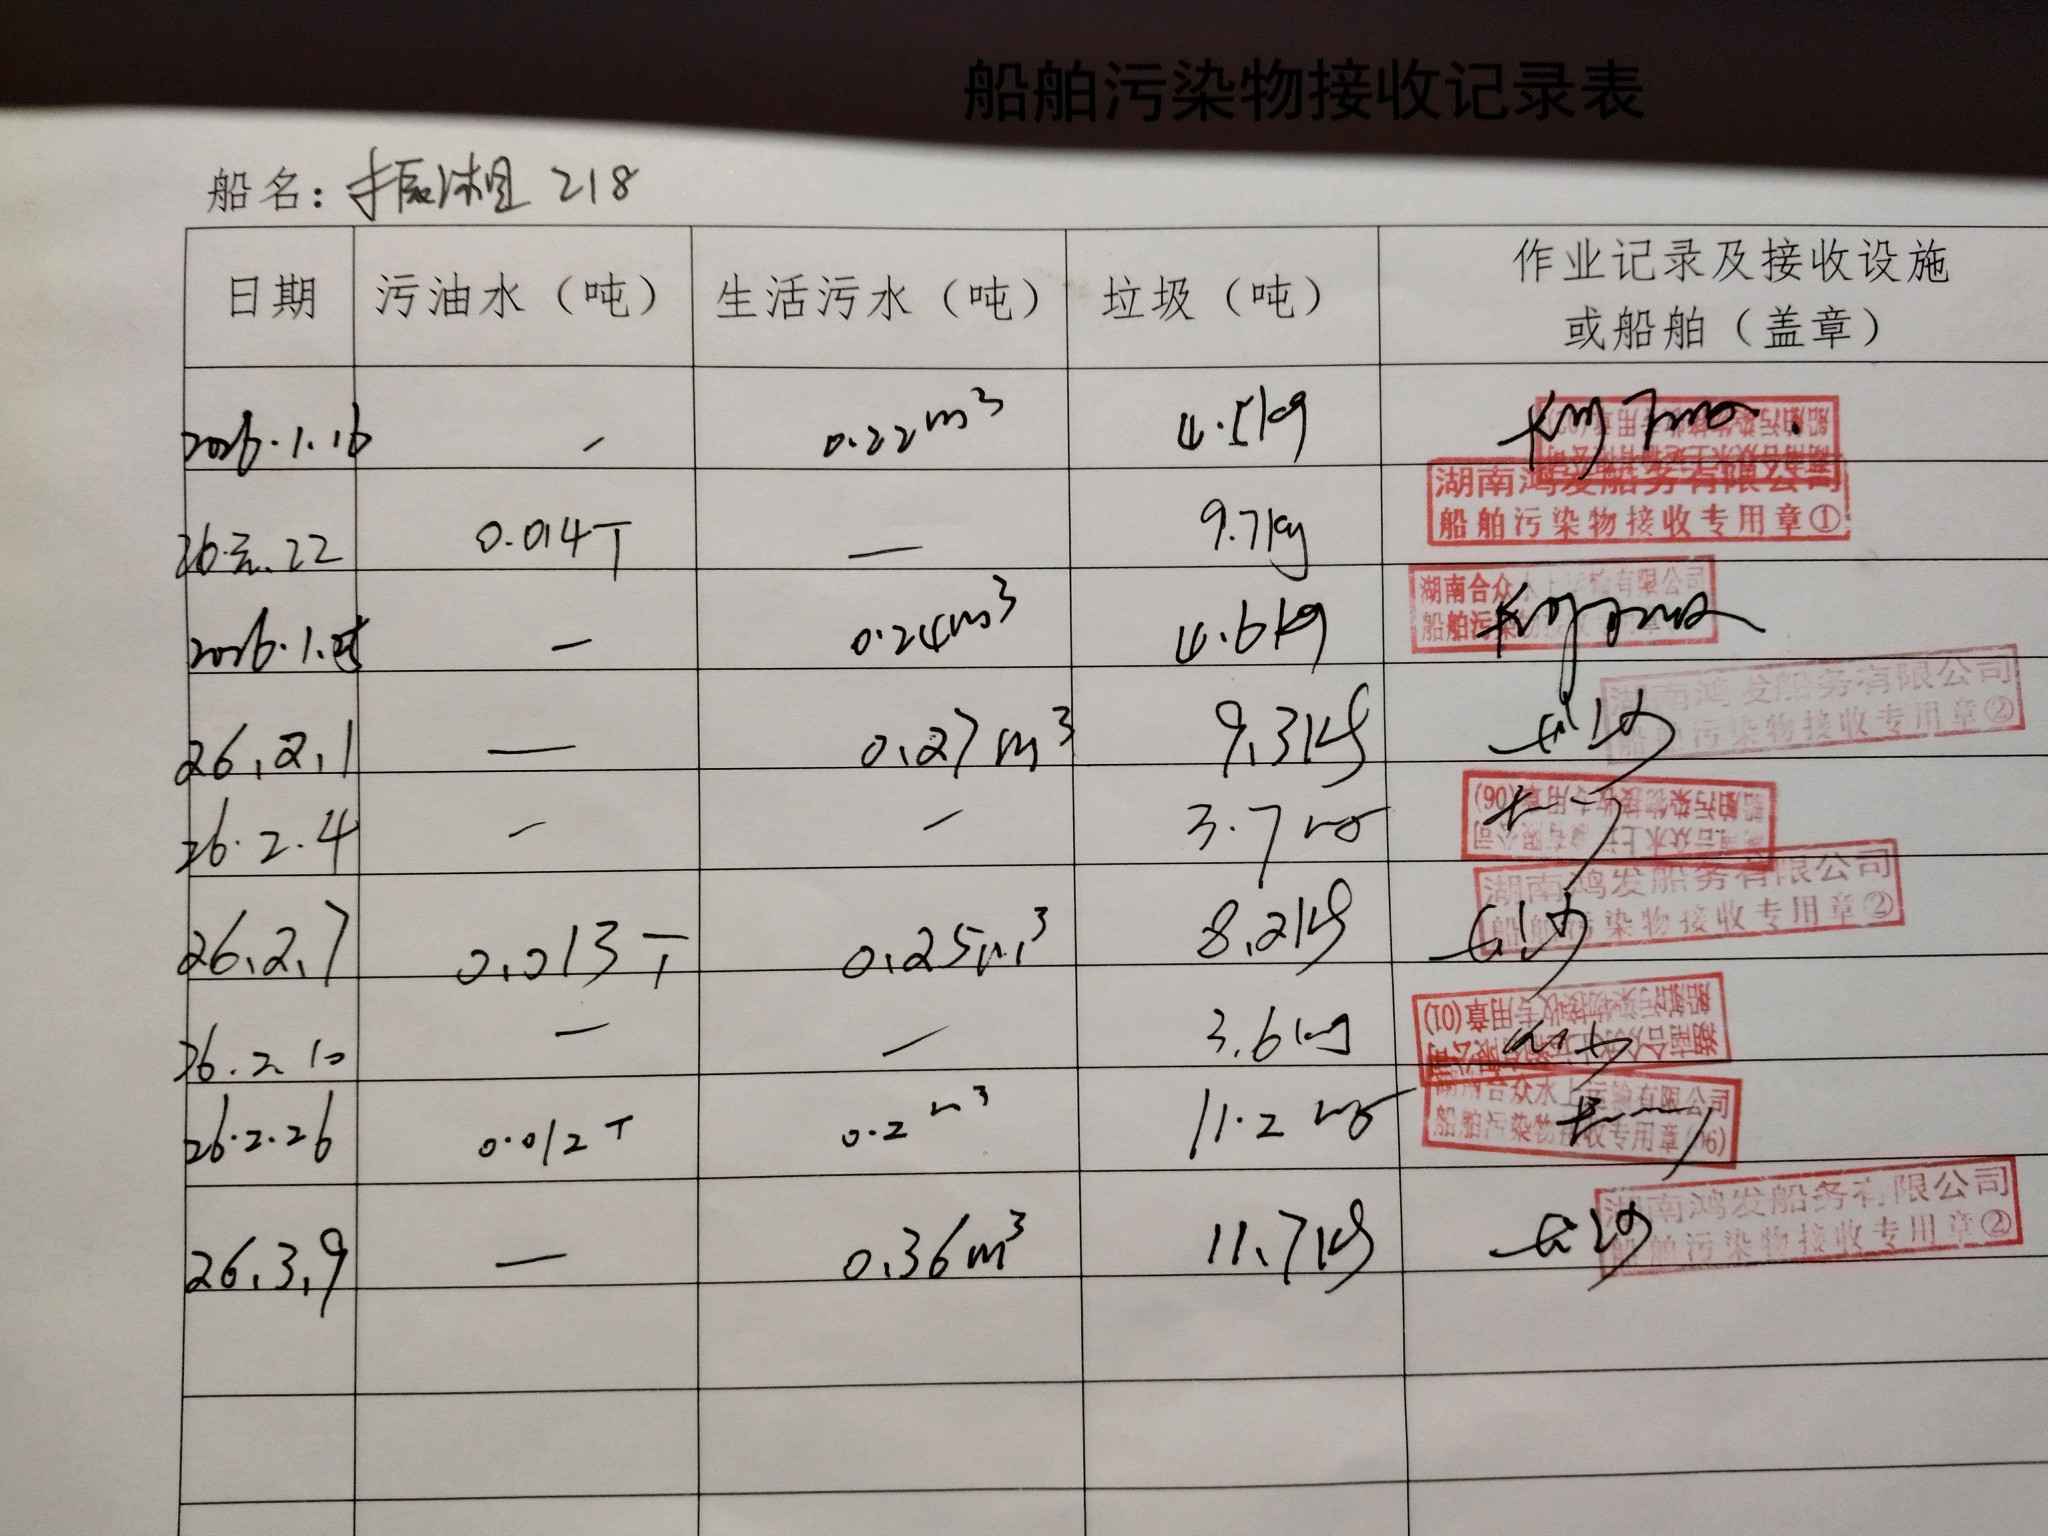 船舶污染物接收记录表
船名: 振湘 218
日期 污油水（吨） 生活污水（吨） 垃圾（吨） 作业记录及接收设施
或船舶（盖章）
2026.1.16 - 0.22m³ 4.5kg
湖南鸿发船务有限公司
船舶污染物接收专用章①
22 0.014T — 9.7kg
湖南合众水上运输有限公司
船舶污染物接收专用章
2026.1. - 0.24m³ 4.6kg
湖南鸿发船务有限公司
船舶污染物接收专用章②
26.2.1 — 0.27m³ 9.3kg
湖南合众水上运输有限公司
船舶污染物接收专用章(06)
26.2.4 - - 3.7kg
湖南鸿发船务有限公司
船舶污染物接收专用章②
26.2.7 0.013T 0.25m³ 8.2kg
湖南合众水上运输有限公司
船舶污染物接收专用章(01)
26.2.10 - - 3.6kg
湖南合众水上运输有限公司
船舶污染物接收专用章(06)
26.2.26 0.012T 0.2m³ 11.2kg
湖南鸿发船务有限公司
船舶污染物接收专用章②
26.3.9 — 0.36m³ 11.7kg